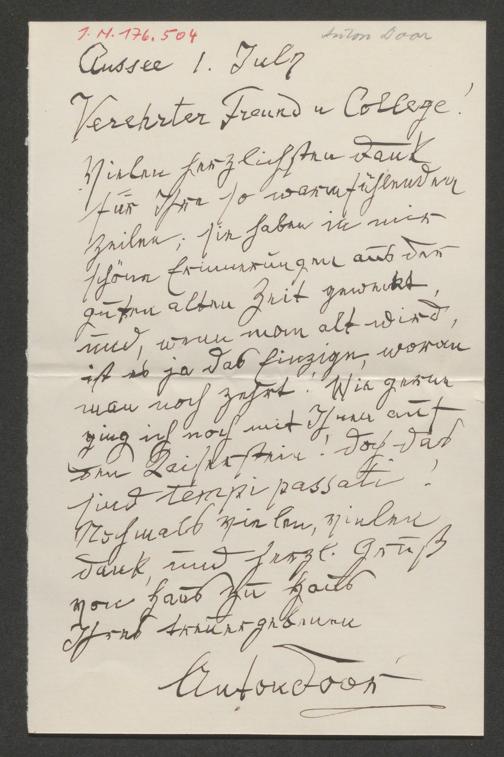 I. N. 176.504
Anton Door
Aussee 1. July
Verehrter Freund u College!
Vielen herzlichsten Dank
für Ihre so warmfühlenden
Zeilen; sie haben in mir
schöne Erinnerungen aus der
guten alten Zeit geweckt,
und, wenn man alt wird,
ist es ja das Einzige, woran
man noch zehrt! Wie gerne
ging ich noch mit Ihnen auf
den! doch das
sind tempi passati!
Nochmals vielen, vielen
Dank, und herzl. Gruß
von Haus zu Haus
Ihres treuergebenen
Anton Door